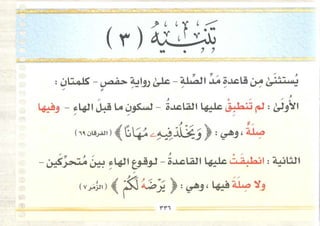 تَنْبِيهٌ (٣)
يُستثنَىٰ مِن قاعدةِ مَدِّ الصِّلةِ - علىٰ روايةِ حفصٍ - كلمتانِ :
الأُولَىٰ : لم تَنطبِقْ عليها القاعدةُ - لسكونِ ما قبلَ الهاءِ - وفيها
صِلَةٌ ، وهي : ﴿ وَيَخْلُدْ فِيهِۦ مُهَانًا ﴾ (الفرقان ٦٩)
الثانية : انطبقَتْ عليها القاعدةُ - لوقوعِ الهاءِ بينَ متحرِّكَين -
ولا صِلَةَ فيها ، وهي : ﴿ يَرْضَهُ لَكُمْ ﴾ (الزُّمَر ٧)
٣٣٦